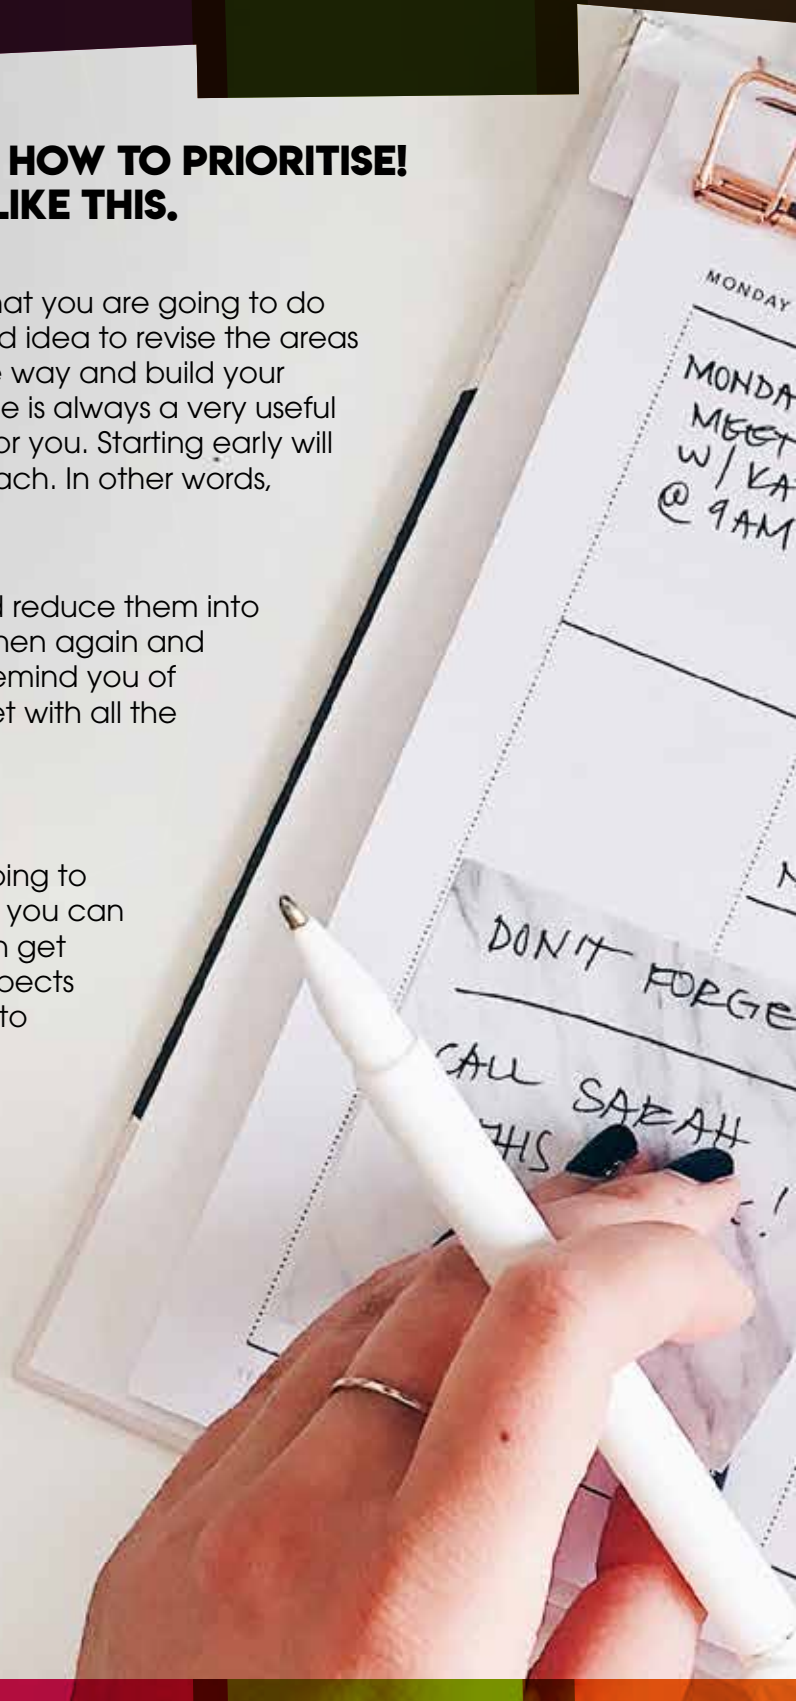 HOW TO PRIORITISE!
LIKE THIS.
hat you are going to do
d idea to revise the areas
e way and build your
e is always a very useful
or you. Starting early will
ach. In other words,
d reduce them into
hen again and
emind you of
et with all the
oing to
you can
n get
pects
to
MONDAY
MONDA
MEET
W/ KA
@ 9AM
DON'T FORGE
CALL SARAH
THIS
!